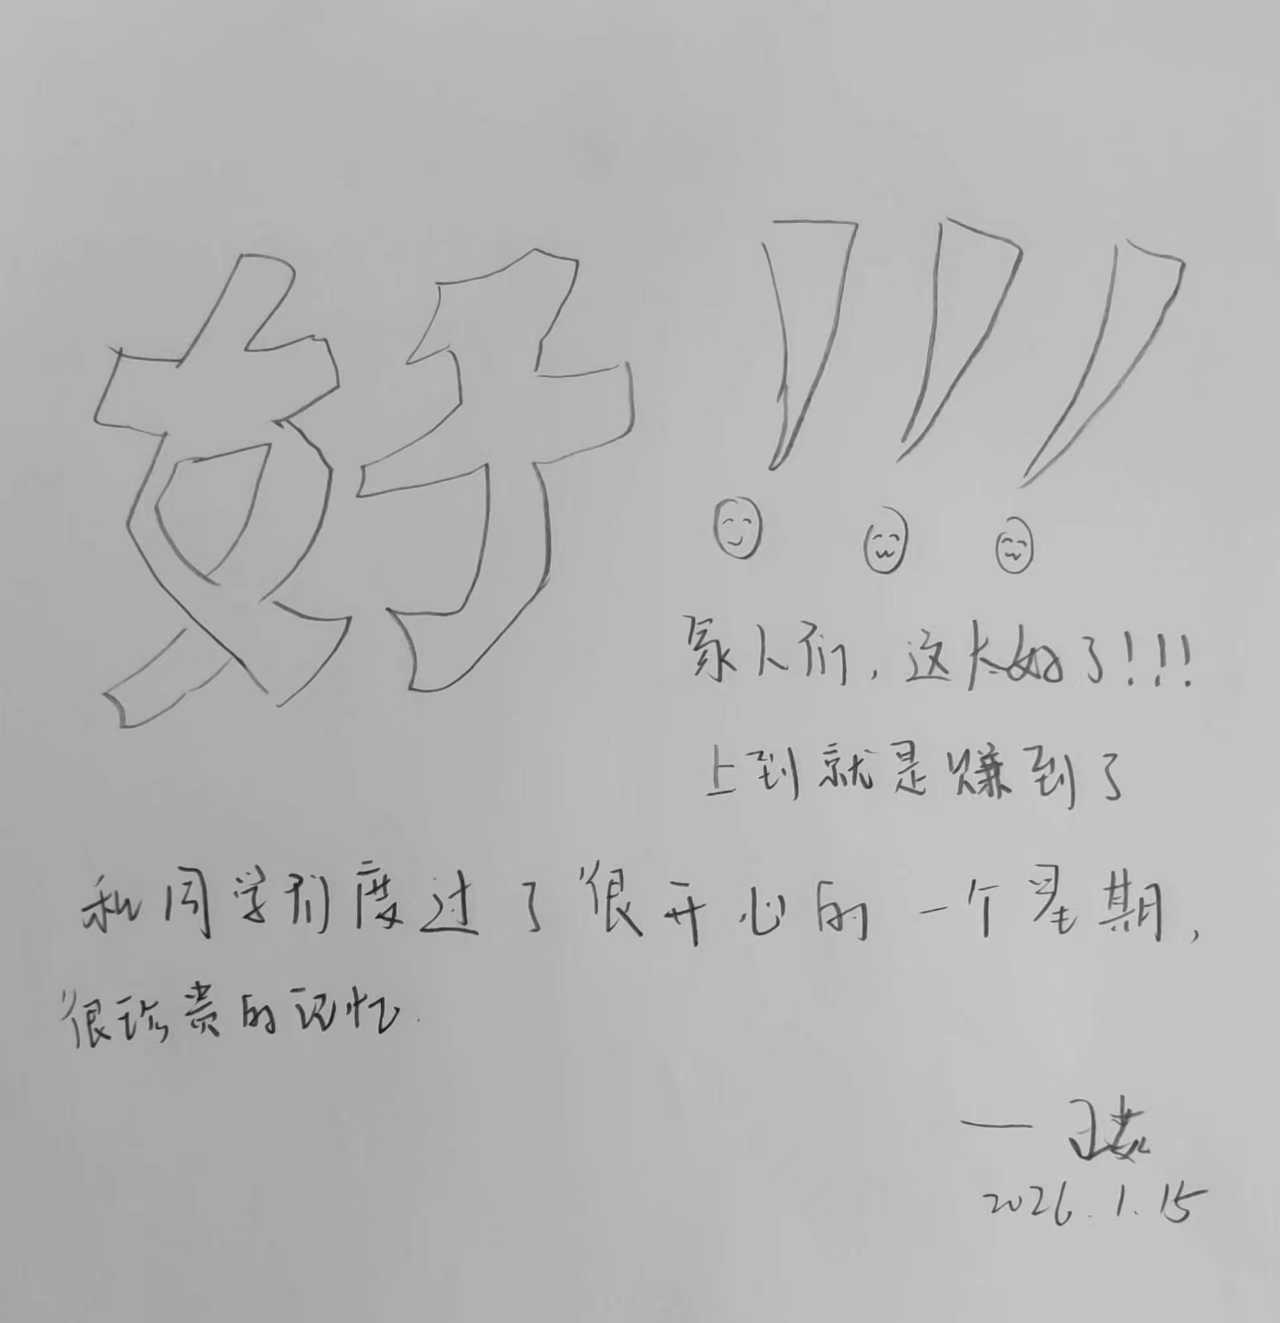 好!!!
家人们，这太好了!!!
上到就是赚到了
和同学们度过了很开心的一个星期，
很珍贵的记忆.
——
2026.1.15